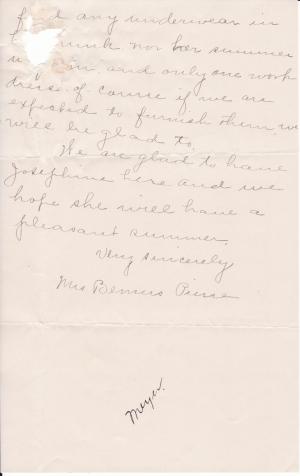 find any underwear in
trunk nor her summer
and only one work
dress of course if we are
expected to furnish them we
will be glad to.
We are glad to have
Josephine here and we
hope she will have a
pleasant summer.
Very sincerely
Mrs
Meyer.